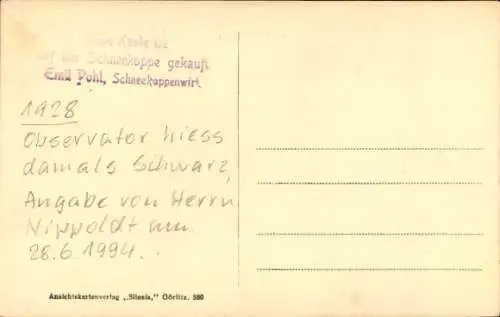 Karte ist
auf der Schneekoppe gekauft
Emil Pohl, Schneekoppenwirt.
1928
Observator hiess
damals Schwarz,
Angabe von Herrn
Nippoldt am
28.6.1994.
Ansichtskartenverlag „Silesia,“ Görlitz. 580